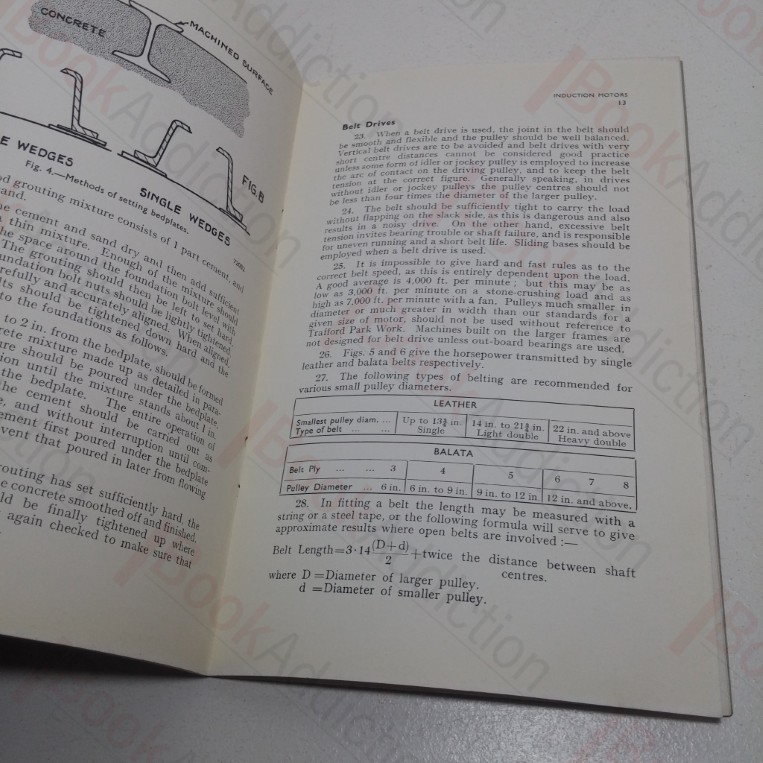 CONCRETE
MACHINED SURFACE
E WEDGES
SINGLE WEDGES
FIG.B
Fig. 4.—Methods of setting bedplates.
grouting mixture consists of 1 part cement, and
and.
e cement and sand dry and then add sufficient
thin mixture. Enough of the mixture should
the space around the foundation bolt level with
The grouting should then be left to set hard.
undation bolt nuts should be lightly tightened
refully and accurately aligned. When aligned
lts should be tightened down hard and the
to the foundations as follows.
to 2 in. from the bedplate, should be formed
crete mixture made up as detailed in para-
ure should be poured under the bedplate,
ion until the mixture stands about 1 in.
the bedplate. The entire operation of
the cement should be carried out as
e, and without interruption until com-
ement first poured under the bedplate
vent that poured in later from flowing
routing has set sufficiently hard, the
e concrete smoothed off and finished.
ld be finally tightened up where
again checked to make sure that
INDUCTION MOTORS
13
Belt Drives
23. When a belt drive is used, the joint in the belt should
be smooth and flexible and the pulley should be well balanced.
Vertical belt drives are to be avoided and belt drives with very
short centre distances cannot be considered good practice
unless some form of idler or jockey pulley is employed to increase
the arc of contact on the driving pulley, and to keep the belt
tension at the correct figure. Generally speaking, in drives
without idler or jockey pulleys the pulley centres should not
be less than four times the diameter of the larger pulley.
24. The belt should be sufficiently tight to carry the load
without flapping on the slack side, as this is dangerous and also
results in a noisy drive. On the other hand, excessive belt
tension invites bearing trouble or shaft failure, and is responsible
for uneven running and a short belt life. Sliding bases should be
employed when a belt drive is used.
25. It is impossible to give hard and fast rules as to the
correct belt speed, as this is entirely dependent upon the load.
A good average is 4,000 ft. per minute; but this may be as
low as 3,000 ft. per minute on a stone-crushing load and as
high as 7,000 ft. per minute with a fan. Pulleys much smaller in
diameter or much greater in width than our standards for a
given size of motor, should not be used without reference to
Trafford Park Work. Machines built on the larger frames are
not designed for belt drive unless out-board bearings are used.
26. Figs. 5 and 6 give the horsepower transmitted by single
leather and balata belts respectively.
27. The following types of belting are recommended for
various small pulley diameters.
LEATHER
Smallest pulley diam. ... Up to 13¾ in. 14 in. to 21¾ in. 22 in. and above
Type of belt ... ... Single Light double Heavy double
BALATA
Belt Ply ... ... 3 4 5 6 7 8
Pulley Diameter ... 6 in. 6 in. to 9 in. 9 in. to 12 in. 12 in. and above.
28. In fitting a belt the length may be measured with a
string or a steel tape, or the following formula will serve to give
approximate results where open belts are involved :—
Belt Length=3·14 (D+d)/2 +twice the distance between shaft
centres.
where D =Diameter of larger pulley.
d =Diameter of smaller pulley.
BookAddiction